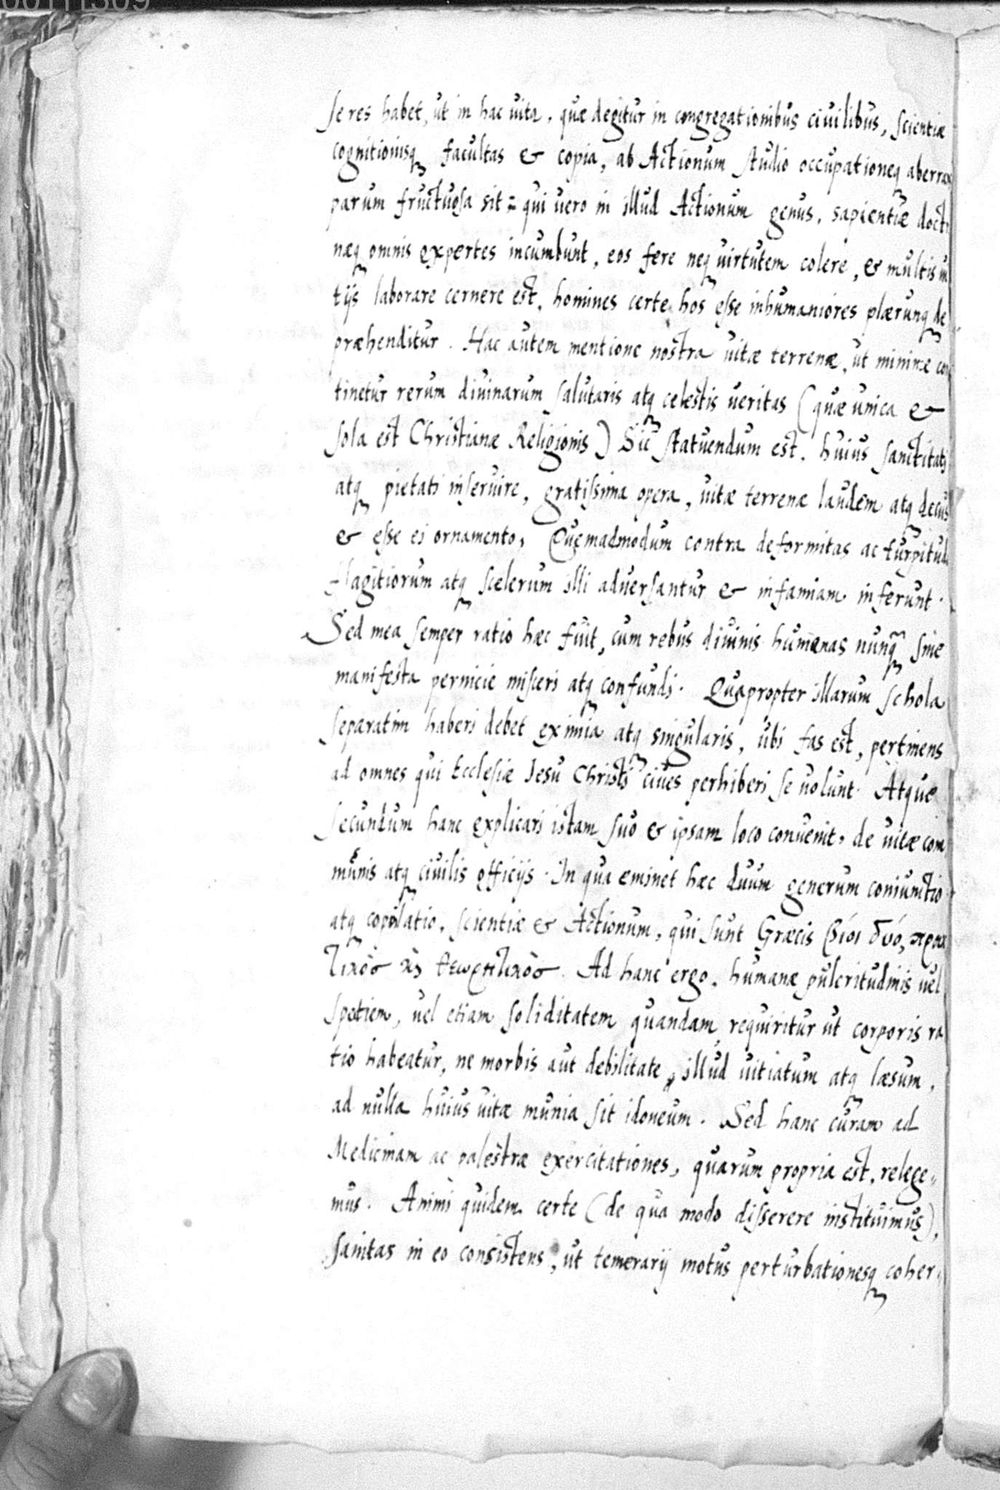 00111309
se res habet, ut in hac uita, quæ degitur in congregationibus ciuilibus, scientiæ
cognitionisq facultas & copia, ab Actionum studio occupationeq aberrans
parum fructuosa sit: qui uero in illud Actionum genus, sapientiæ doctri
næq omnis expertes incumbunt, eos fere neq uirtutem colere, & multis ui
tijs laborare cernere est, homines certe hos esse inhumaniores plærunq de
præhenditur. Hac autem mentione nostra uitæ terrenæ, ut minime con
tinetur rerum diuinarum salutaris atq celestis ueritas (quæ unica &
sola est Christianæ Religionis) Sic statuendum est. huius sanctitati
atq pietati inseruire, gratissima opera, uitæ terrenæ laudem atq decus
& esse ei ornamento, Quemadmodum contra deformitas ac turpitudo
flagitiorum atq scelerum illi aduersantur & infamiam inferunt.
Sed mea semper ratio hæc fuit, cum rebus diuinis humanas nunq sine
manifesta pernicie misceri atq confundi. Quapropter illarum schola
separatim haberi debet eximia atq singularis, ubi fas est, pertinens
ad omnes qui Ecclesiæ Jesu Christi ciues perhiberi se uolunt. Atque
secundum hanc explicari istam suo & ipsam loco conuenit, de uitæ com
munis atq ciuilis officijs. In qua eminet hæc duum generum coniunctio
atq copulatio, scientiæ & Actionum, qui sunt Græcis βίοι δυό, πρακ
τικὸσ κỳ θεωρητικὸσ. Ad hanc ergo, humanæ pulcritudinis uel
spetiem, uel etiam soliditatem quandam requiritur ut corporis ra
tio habeatur, ne morbis aut debilitate, illud uitiatum atq læsum,
ad nulla huius uitæ munia sit idoneum. Sed hanc curam ad
Medicinam ac palestræ exercitationes, quarum propria est, relege„
mus. Animi quidem certe (de qua modo disserere instituimus),
sanitas in eo consistens, ut temerarij motus perturbationesq coher